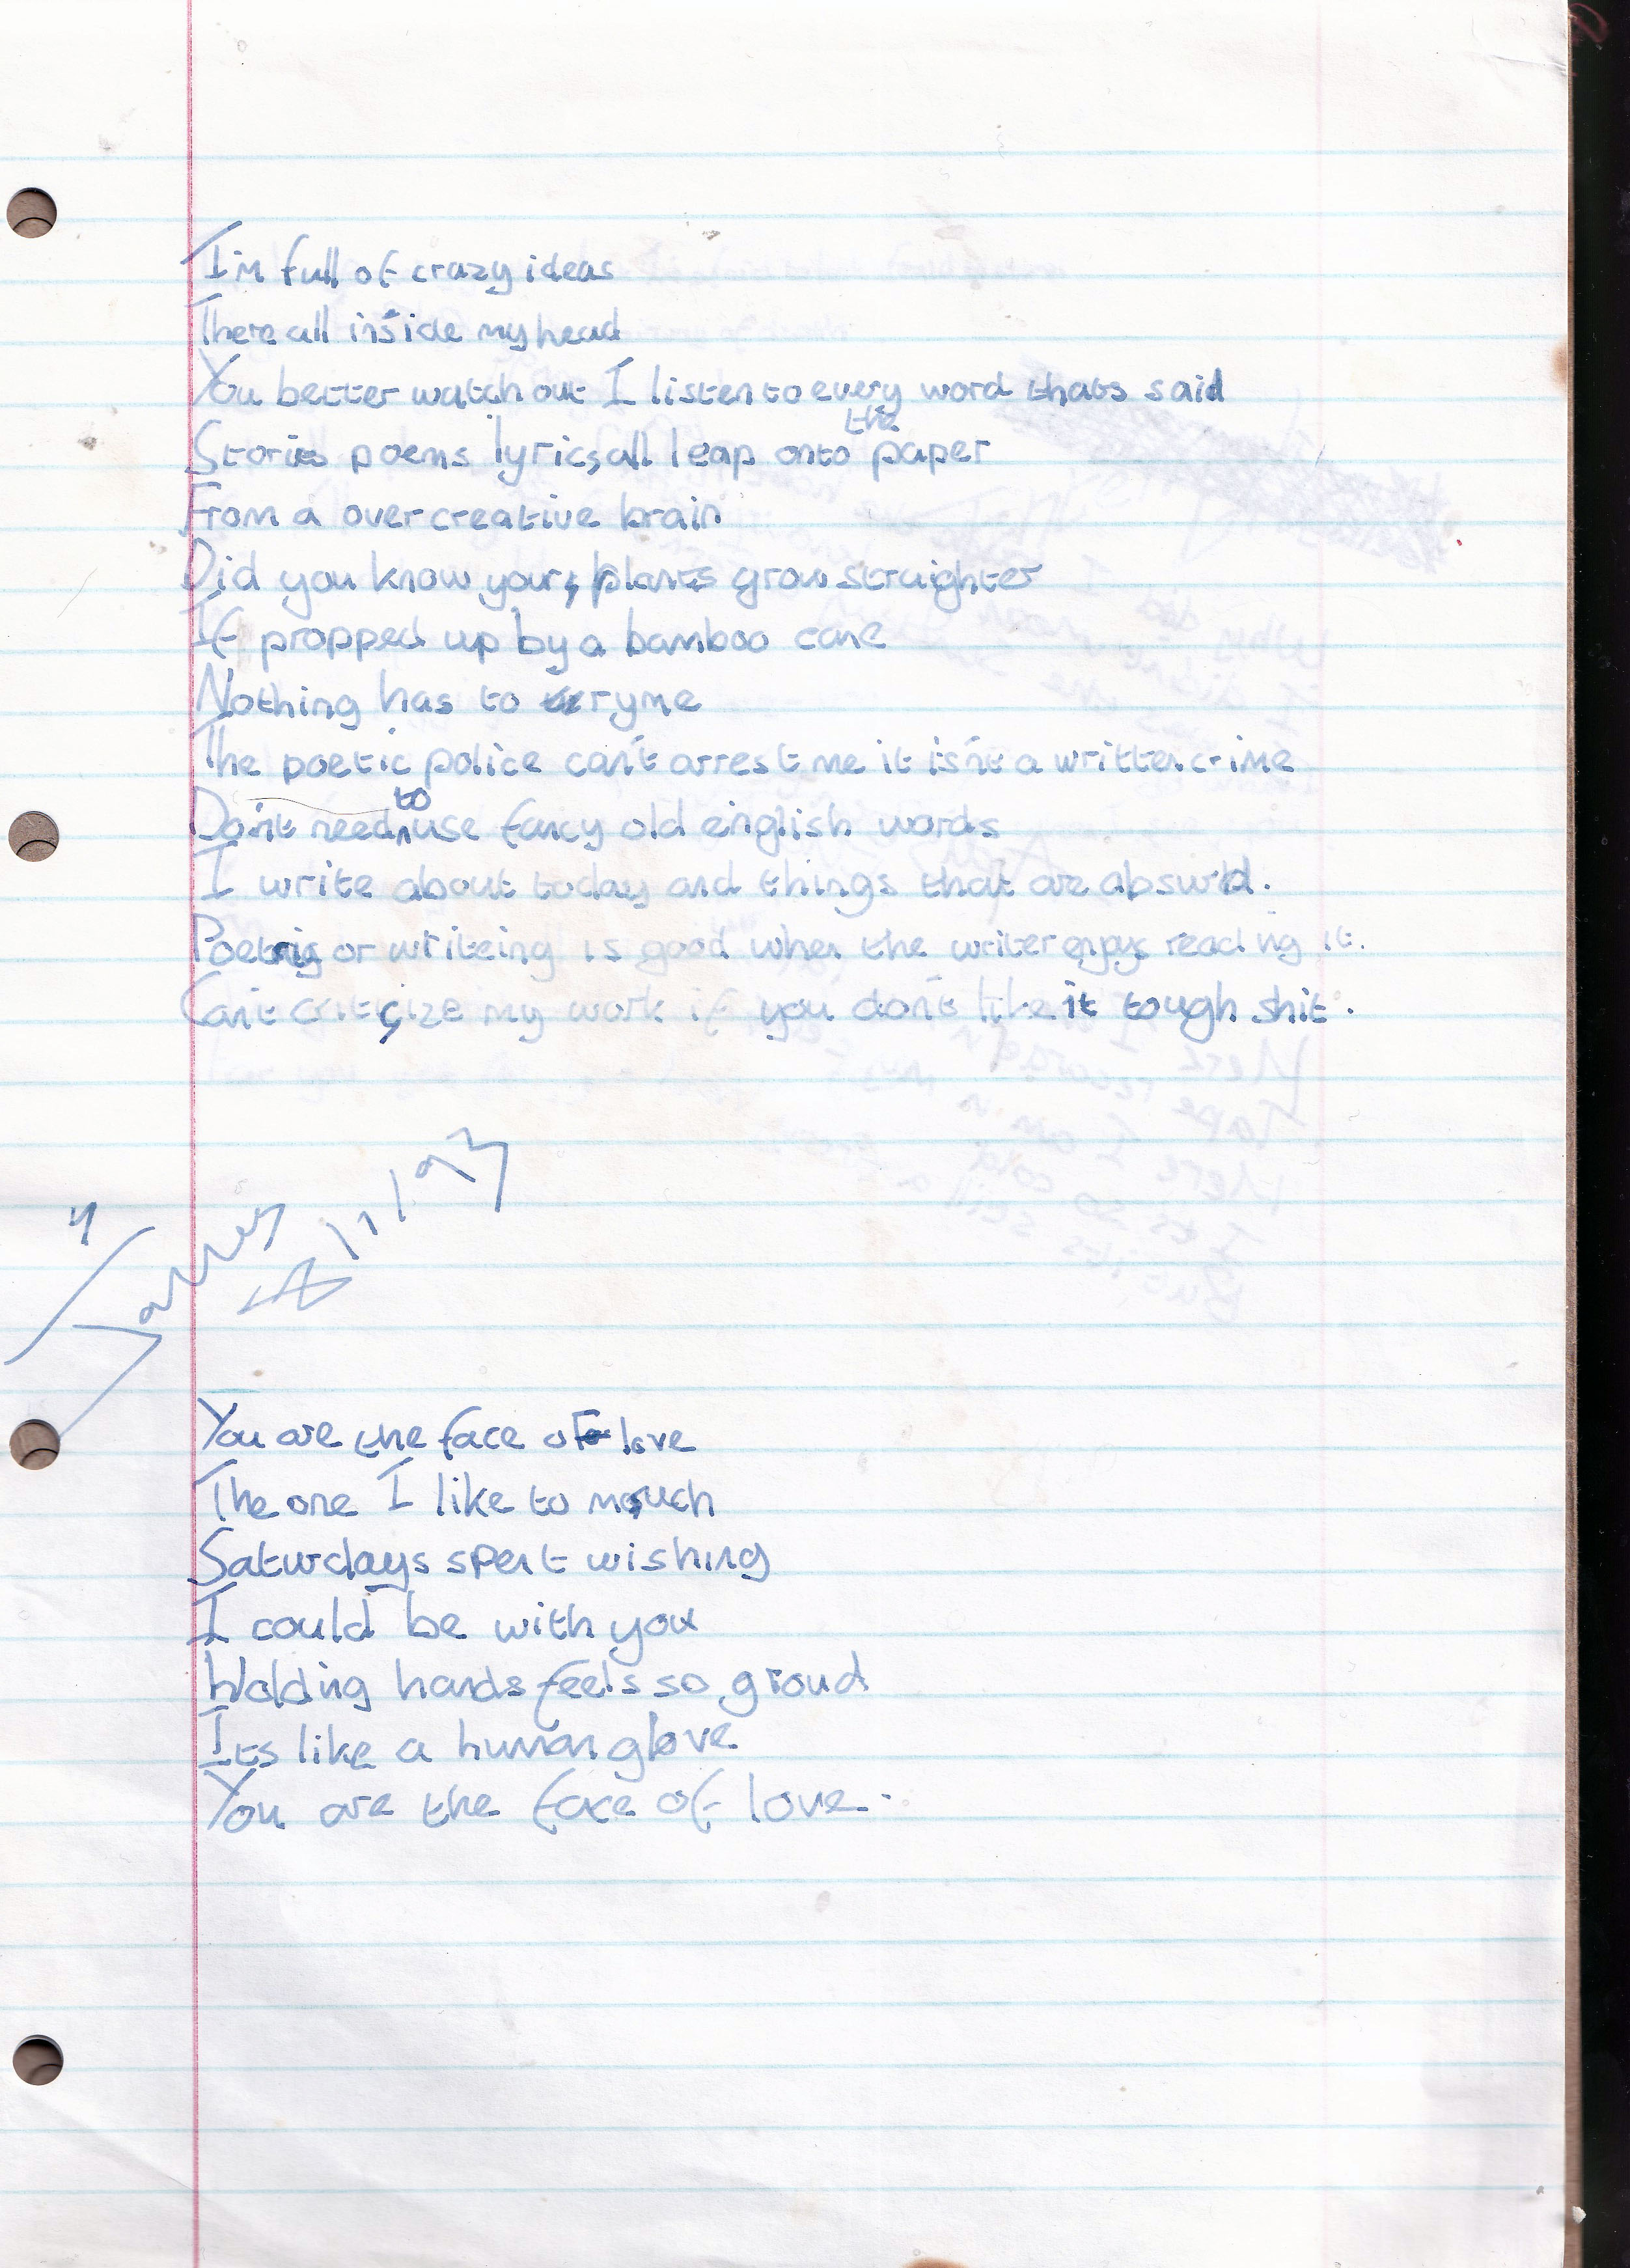 I'm full of crazy ideas
There all inside my head
You better watch out I listen to every word thats said
Stories poems lyrics, all leap onto the paper
From a over creative brain
Did you know your, plants grow straighter
If propped up by a bamboo cane
Nothing has to ryme
The poetic police can't arrest me it isn't a written crime
Don't need to use fancy old english words
I write about today and things that are absurd.
or writeing is good when the writer enjoys reading it.
Can't criticize my work if you don't like it tough shit.
You are the face of love
The one I like to much
Saturdays spent wishing
I could be with you
Holding hands feels so groud
Its like a human glove
You are the face of love.